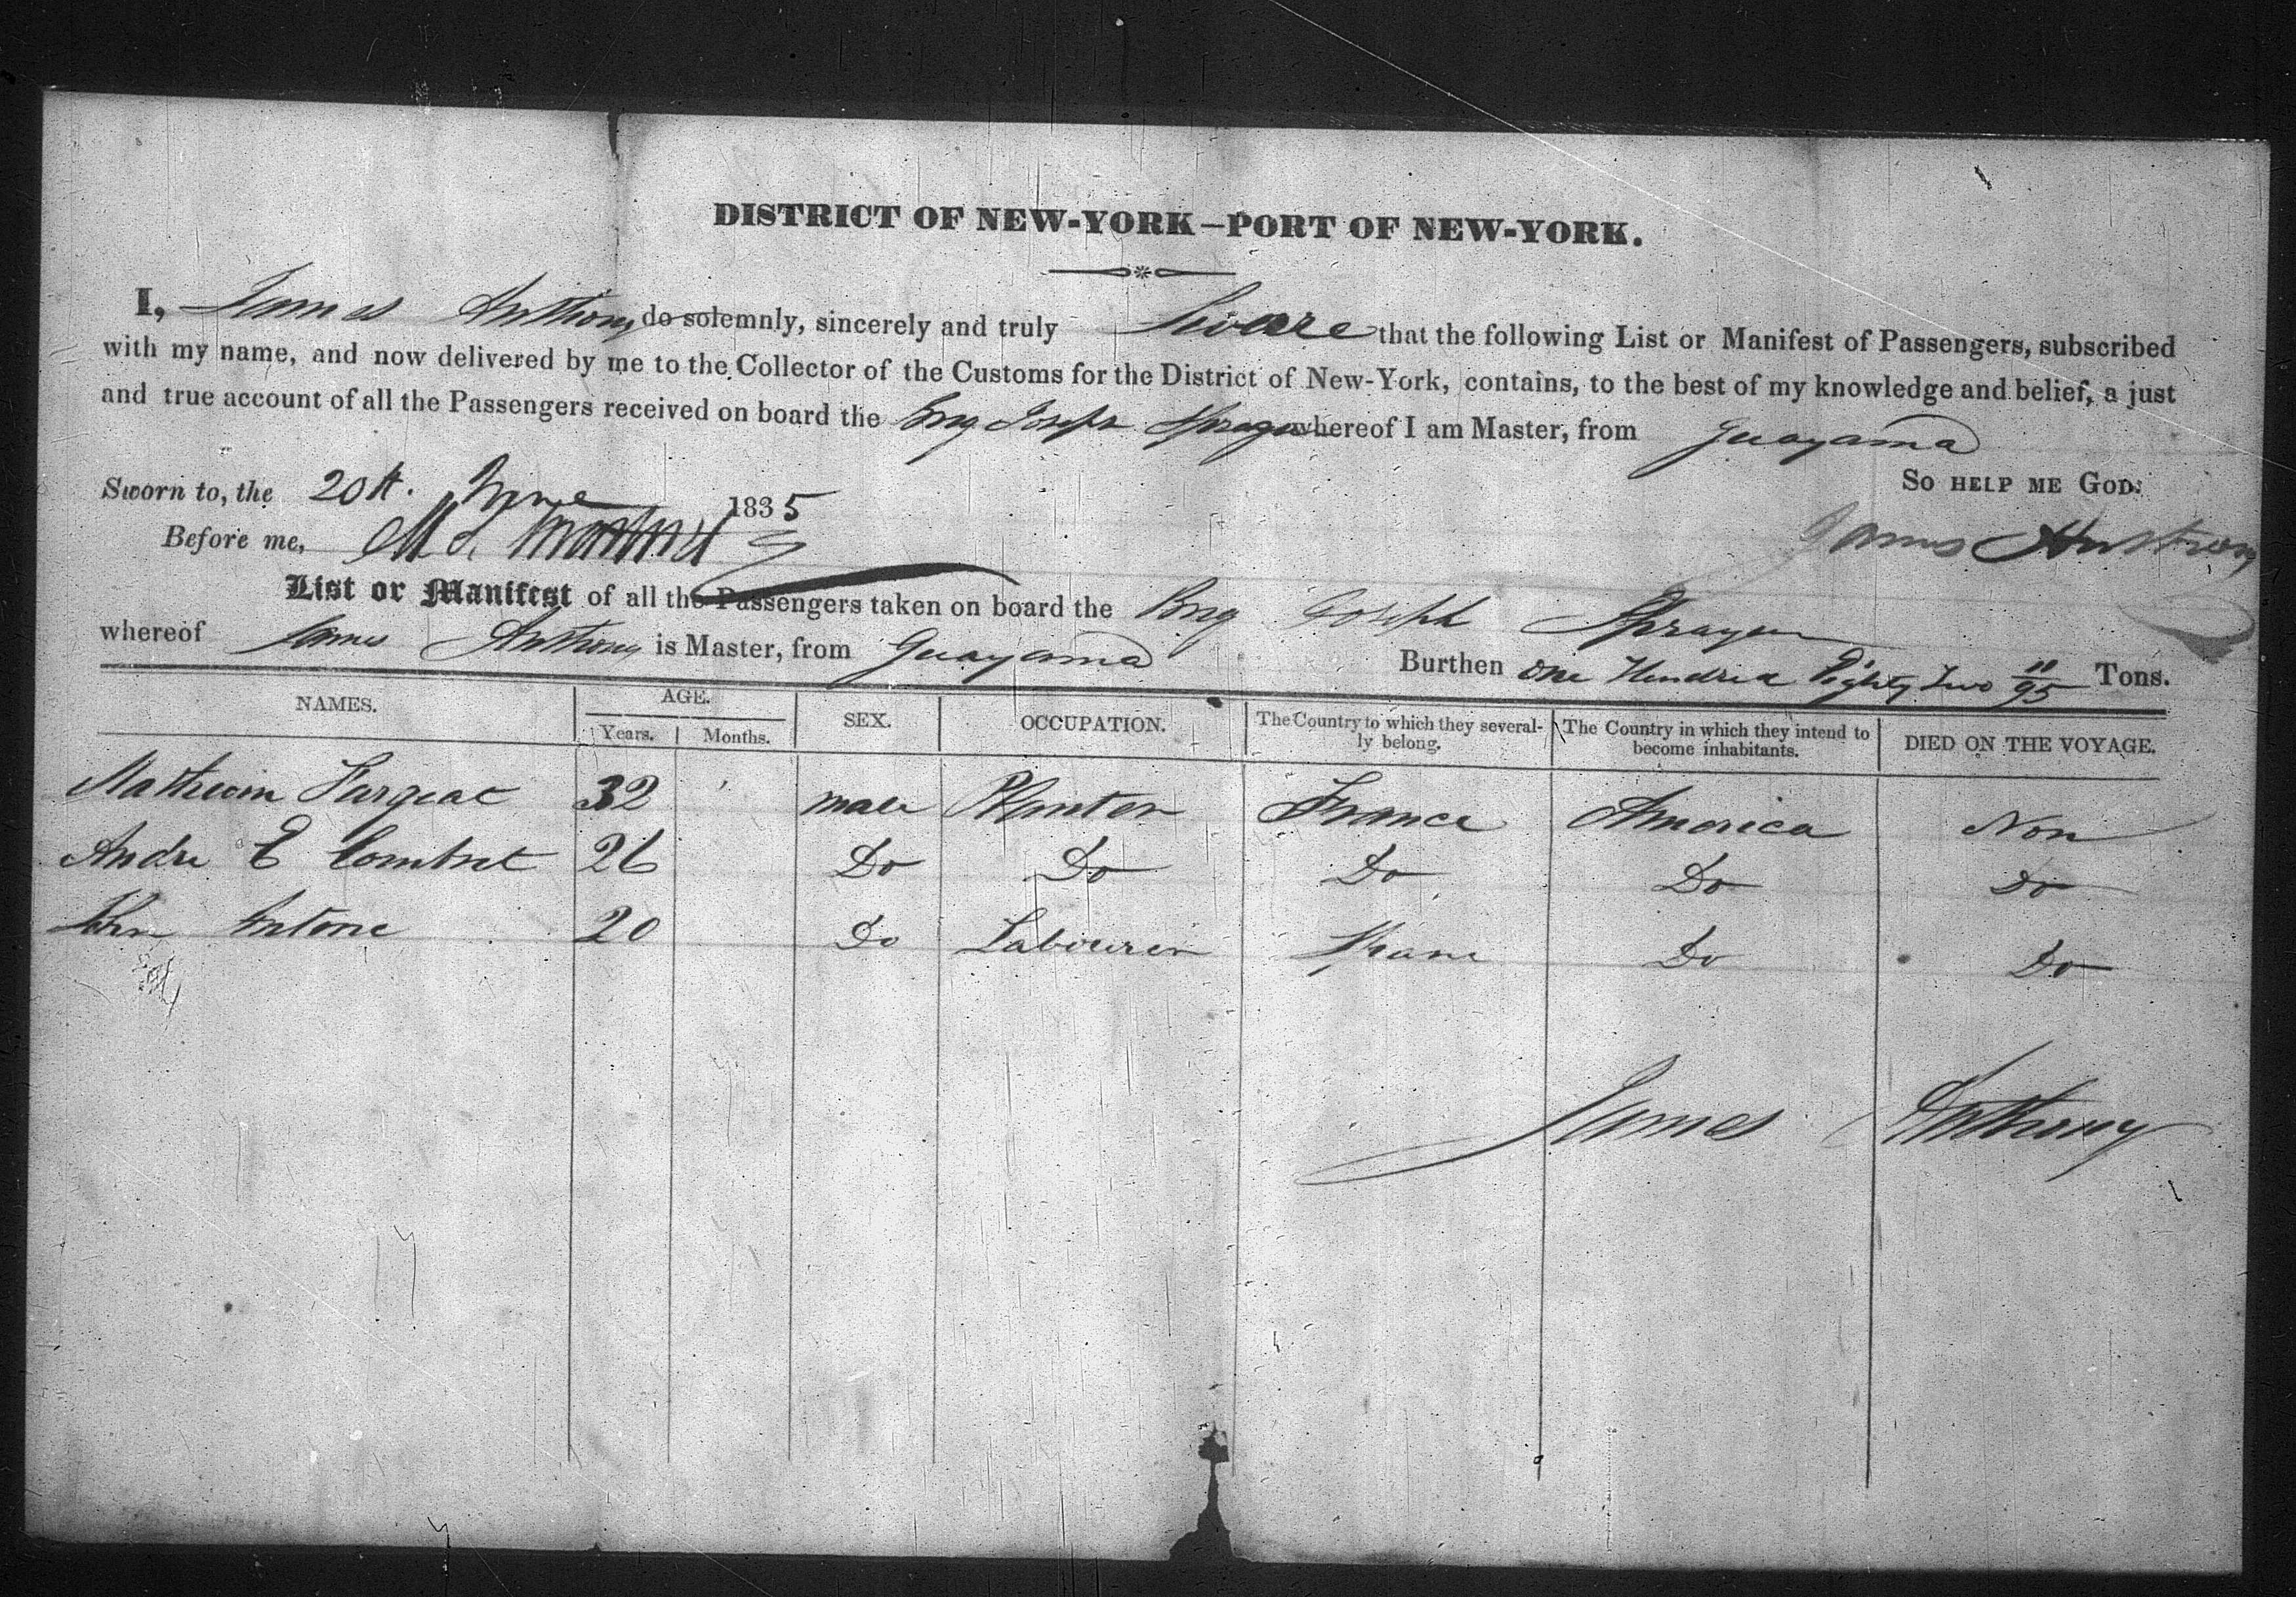 DISTRICT OF NEW-YORK—PORT OF NEW-YORK.
I, James Anthony do solemnly, sincerely and truly Sweare that the following List or Manifest of Passengers, subscribed
with my name, and now delivered by me to the Collector of the Customs for the District of New-York, contains, to the best of my knowledge and belief, a just
and true account of all the Passengers received on board the Brig Joseph Sprague whereof I am Master, from Guayama
So HELP ME GOD:
Sworn to, the 20th. June 1835
James Anthony
Before me,
List or Manifest of all the Passengers taken on board the Brig Joseph Sprague
whereof James Anthony is Master, from Guayama Burthen One Hundred Eighty Two 11/95 Tons.
NAMES. AGE. SEX. OCCUPATION. The Country to which they several-ly belong. The Country in which they intend to become inhabitants. DIED ON THE VOYAGE.
Years. Months.
32 male Planter France America Non
Andre E Combret 26 Do Do Do Do Do
John Antone 20 Do Labourer Do Do
James Anthony